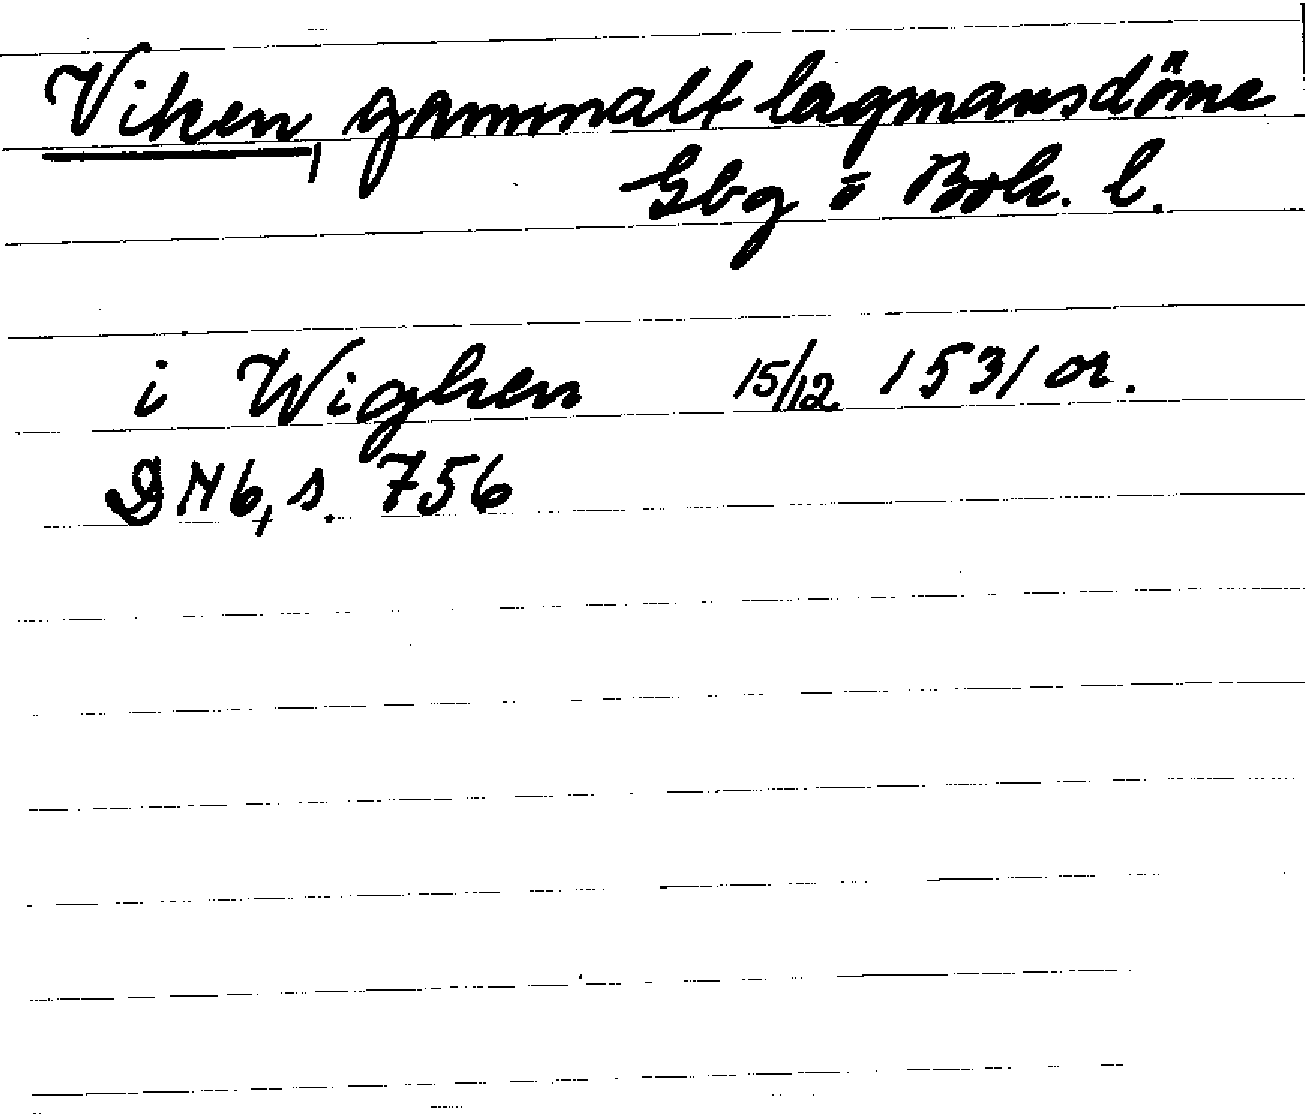 Viken, gammalt lagmansdöme
Gbg o Boh. l.
i Wighen 15/12 1531 or.
DN 6, s. 756